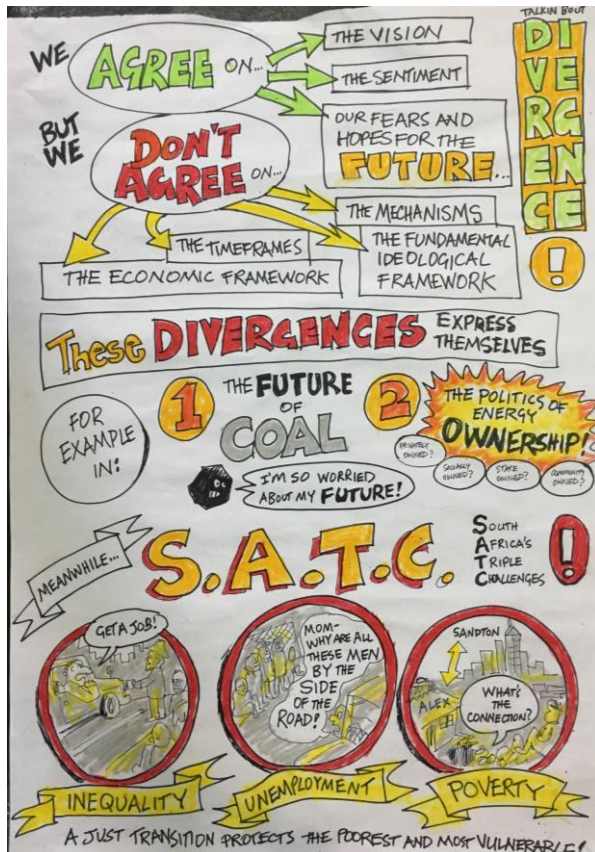 TALKIN BOUT
DIVERGENCE!
WE AGREE ON...
THE VISION
THE SENTIMENT
OUR FEARS AND
HOPES FOR THE
FUTURE...
BUT
WE
DON'T
AGREE ON...
THE MECHANISMS
THE FUNDAMENTAL
IDEOLOGICAL
FRAMEWORK
THE TIMEFRAMES
THE ECONOMIC FRAMEWORK
These DIVERGENCES EXPRESS
THEMSELVES
FOR
EXAMPLE
IN:
1
THE FUTURE
OF
COAL
I'M SO WORRIED
ABOUT MY FUTURE!
2
THE POLITICS OF
ENERGY
OWNERSHIP!
PRIVATELY
OWNED?
SOCIALLY
OWNED?
STATE
OWNED?
COMMUNITY
OWNED?
MEANWHILE...
S.A.T.C.
SOUTH
AFRICA'S
TRIPLE
CHALLENGES
!
GET A JOB!
INEQUALITY
MOM-
WHY ARE ALL
THESE MEN
BY THE
SIDE
OF THE
ROAD?
UNEMPLOYMENT
SANDTON
ALEX
WHAT'S
THE
CONNECTION?
POVERTY
A JUST TRANSITION PROTECTS THE POOREST AND MOST VULNERABLE!